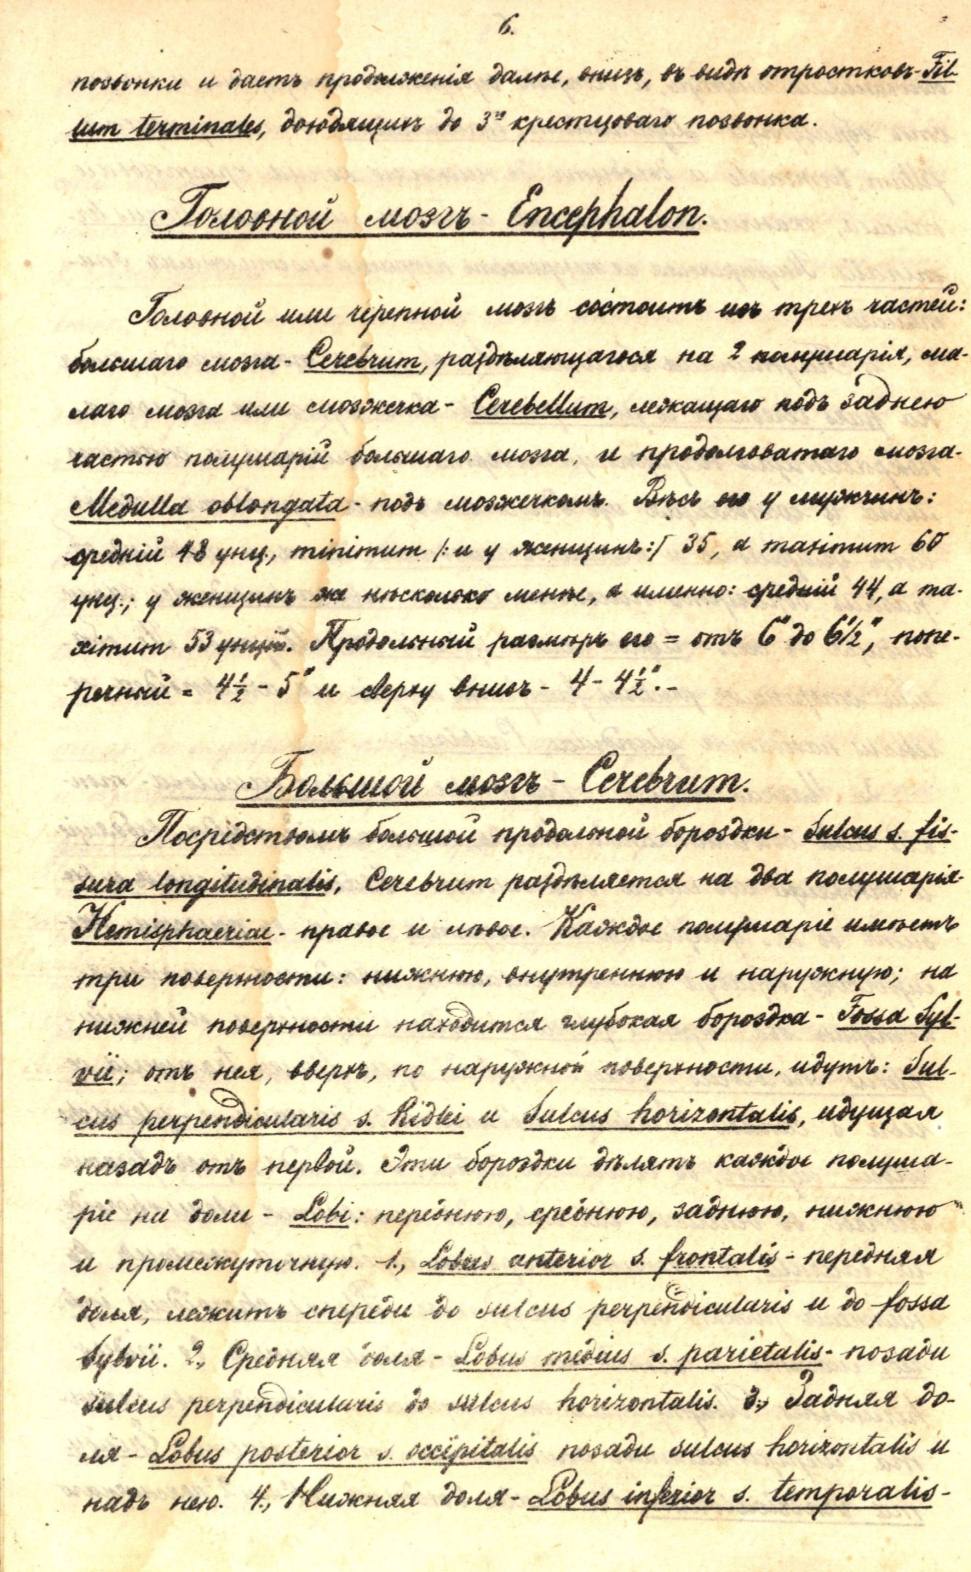 6.
позвонки и даетъ продолженія далѣе, внизъ, въ видѣ отростковъ - Fil-
lum terminales, доходящихъ до 3го крестцоваго позвонка.
Головной мозгъ - Encephalon.
Головной или черепной мозгъ состоитъ изъ трехъ частей:
большаго мозга - Cerebrum, раздѣляющагося на 2 полушарія, ма-
лаго мозга или мозжечка - Cerebellum, лежащаго подъ заднею
частью полушарій большаго мозга, и продолговатаго мозга -
Medulla oblongata - подъ мозжечкомъ. Вѣсъ его у мужчинъ:
средній 48 унц., minimum /: и у женщинъ :/ 35, а maximum 60
унц.; у женщинъ же нѣсколько менѣе, а именно: средній 44, а ma-
ximum 53 унціи. Продольный размѣръ его = отъ 6" до 6½", попе-
речный = 4½ - 5" и сверху внизъ - 4 - 4½". -
Большой мозгъ - Cerebrum.
Посрѣдствомъ большой продольной бороздки - Sulcus s. fis-
sura longitudinalis, Cerebrum раздѣляется на два полушарія -
Hemisphaeriae - правое и лѣвое. Каждое полушаріе имѣетъ
три поверхности: нижнюю, внутреннюю и наружную; на
нижней поверхности находится глубокая бороздка - Fossa Syl-
vii; отъ нея, вверхъ, по наружной поверхности, идутъ: Sul-
cus perpendicularis s. Ridlei и Sulcus horizontalis, идущая
назадъ отъ первой. Эти бороздки дѣлятъ каждое полуша-
ріе на доли - Lobi: переднюю, среднюю, заднюю, нижнюю
и промежуточную. 1., Lobus anterior s. frontalis - передняя
доля, лежитъ спереди до sulcus perpendicularis и до fossa
Sylvii. 2., Средняя доля - Lobus medius s. parietalis - позади
sulcus perpendicularis до sulcus horizontalis. 3., Задняя до-
ля - Lobus posterior s. occipitalis позади sulcus horizontalis и
надъ нею. 4., Нижняя доля - Lobus inferior s. temporalis -